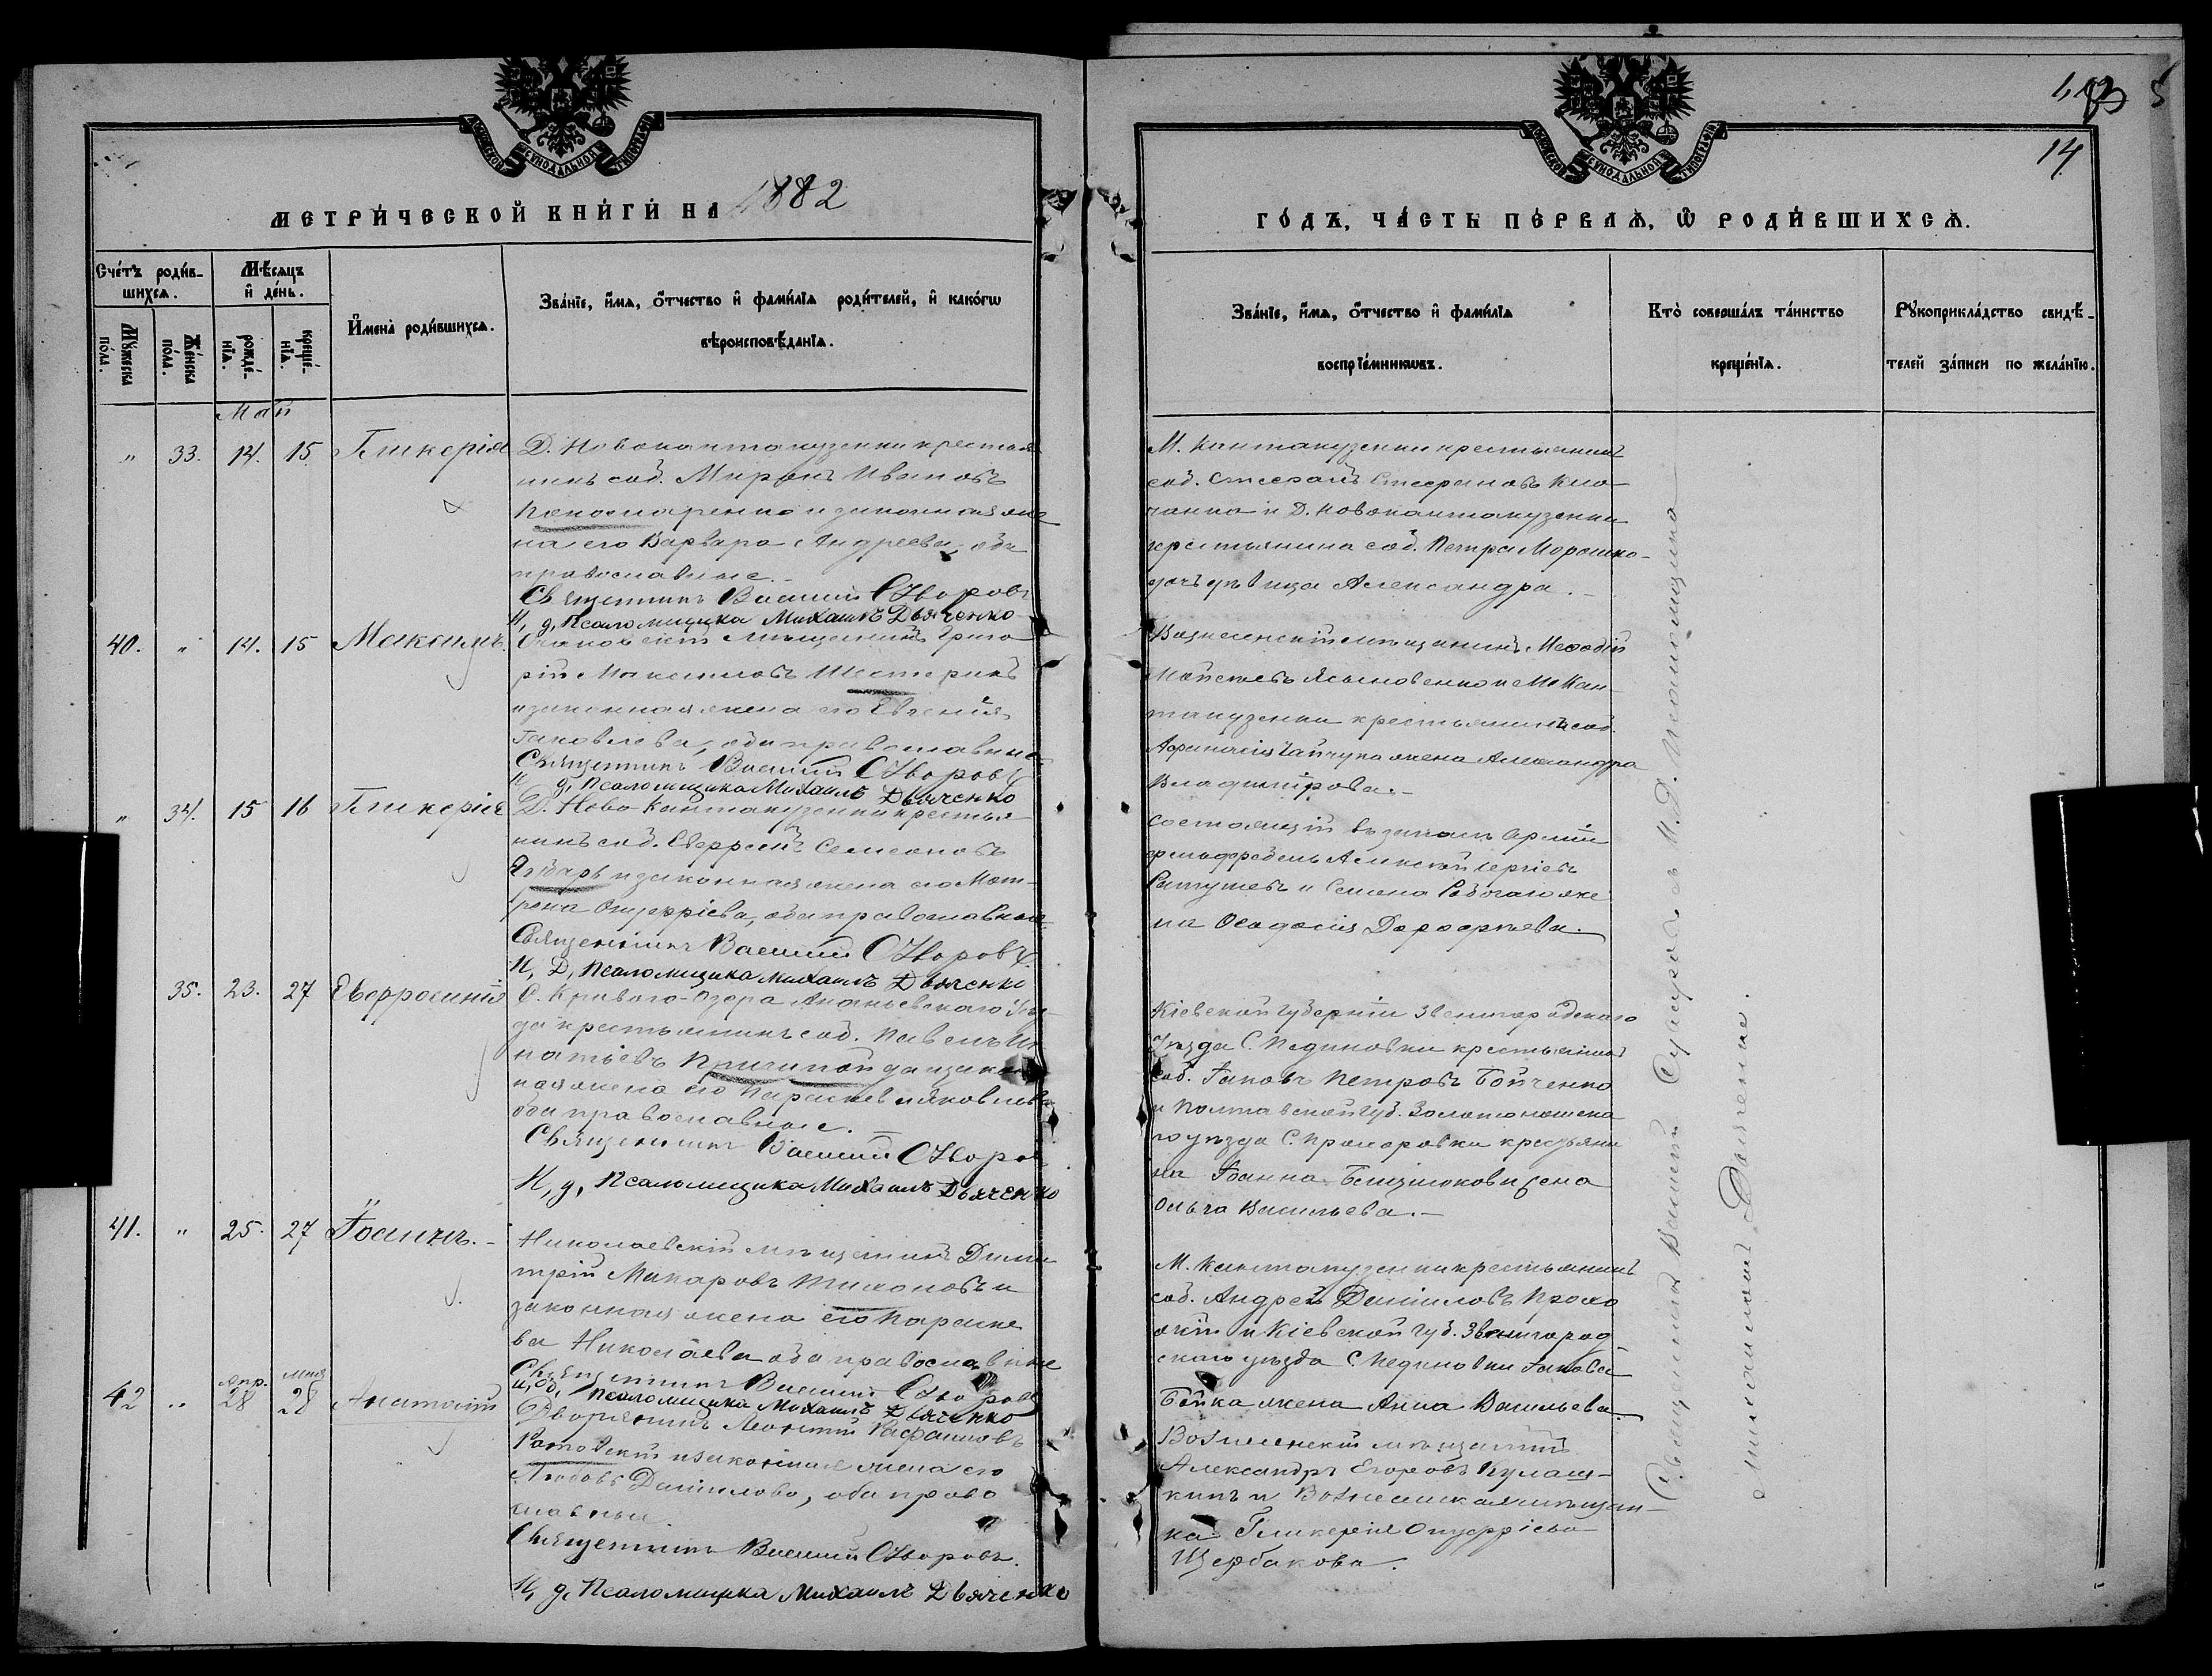 МОСКОВСКОЙ СѴНОДАЛЬНОЙ ТИПОГРАФІИ
МЕТРИ́ЧЕСКОЙ КНИ́ГИ НА 1882
Сче́тъ роди́в-
шихсѧ.
Мѣ́сѧцъ
и҆ де́нь.
И҆мена̀ роди́вшихсѧ.
Зва́нїе, и҆́мѧ, ѻ҆́тчество и҆ фами́лїѧ роди́телей, и҆ како́гѡ
вѣроисповѣ́данїѧ.
Мꙋ́жеска по́ла.
Же́нска по́ла.
рожде́-
нїѧ.
креще́-
нїѧ.
Май
" 33. 14. 15. Гликерія
Д. Новокантакузенки крестья
нинъ соб. Миронъ Ивановъ
Паномаренко и законная же
на его Варвара Андреева, оба
православные.
Священникъ Василий
И, д, Псаломщика Михаилъ Дьяченко
40. " 14. 15 Максимъ.
мѣщанинъ Григо
рій Максимовъ Шестерикъ
и законная жена его Евгенія
Іаковлева, оба православные
Священникъ Василий
И, д, Псаломщика Михаилъ Дьяченко
" 34. 15 16 Гликерія
Д. Ново-Кантакузенки крестья
нинъ соб. Семеоновъ
и законная жена его Мат-
рена Онуфріева, оба православные
Священникъ Василий
И, Д, Псаломщика Михаилъ Дьяченко
35. 23. 27 Евфросинія
С. Кривого-Озера Ананьевскаго Уѣз-
да крестьянинъ соб. Павелъ Иг
натіевъ да закон
ная жена его Параскева Яковлева
оба православные.
Священникъ Василий
И, д, Псаломщика Михаилъ Дьяченко
41. " 25. 27 Іоаннъ.
Николаевскій мѣщанинъ Дими
трій Макаровъ Тихоновъ и
законная жена его Параске
ва Николаева оба православные
Священникъ Василий
и, д, Псаломщика Михаилъ Дьяченко
Апр. Мая
42 " 28 28 Анатолій
Дворянинъ Леонтій
и законная жена его
Любовь Данилова, оба право
славные
Священникъ Василий
И, д, Псаломщика Михаилъ Дьяченко
14
МОСКОВСКОЙ СѴНОДАЛЬНОЙ ТИПОГРАФІИ
ГО́ДЪ, ЧА́СТЬ ПЕ́РВАѦ, Ѡ҆ РОДИ́ВШИХСѦ.
Зва́нїе, и҆́мѧ, ѻ҆́тчество и҆ фами́лїѧ
воспрїе́мникѡвъ.
Кто̀ соверша́лъ та́инство
креще́нїѧ.
Рꙋкоприкла́дство свидѣ́-
телей за́писи по жела́нїю.
М. Кантакузенки крестьянинъ
соб. Стефанъ Стефановъ Кло
чанко и Д. Новокантакузенки
крестьянина соб. Петра Морошко
дочь дѣвица Александра.
Вознесенскій мѣщанинъ Меѳодій
Мойсеевъ и М. Кан-
такузенки крестьянина соб.
Афанасія жена Александра
Владимірова.
состоящій въ запасѣ Арміи
фельдфебель Алексѣй Сергіевъ
и Семена же
на Ѳеодосія Дорофѣева.
Кіевской Губерніи Звенигородского
Уѣзда С. Пединовки крестьянинъ
соб. Іаковъ Петровъ Бойченко
и Полтавской губ. Золотоношска
го уѣзда С. крестьяни
на Іоанна жена
Ольга Васильева.
М. Кантакузенки крестьянинъ
соб. Андрей Даниловъ
и Кіевской губ. Звенигород
скаго уѣзда С. Пединовки Іакова
Бойка жена Анна Васильева.
Вознесенскій мѣщанинъ
Александръ Егоровъ Кулаш-
кинъ и Вознесенская мѣщан-
ка Гликерія Онуфріева
Щербакова.
Священникъ Василій съ И. Д. Псаломщика
Михаиломъ Дьяченко.